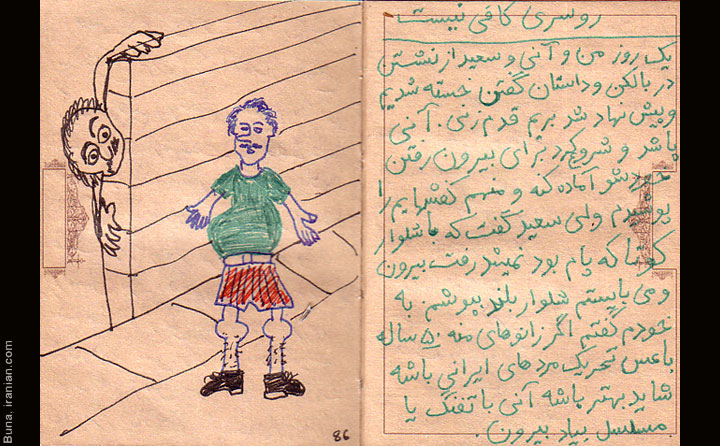 روسری کافی نیست
یک روز من و آنی و سعید از نشستن
در بالکن و داستان گفتن خسته شدیم
و پیش نهاد شد بریم قدم زنی. آنی
پاشد و شروکرد برای بیرون رفتن
خودشو آماده کنه و منهم کفشهایم را
پوشیدم ولی سعید گفت که با شلوار
کوتاه که پام بود نمیشد رفت بیرون
و می بایستم شلوار بلند بپوشم. به
خودم گفتم اگر زانوهای منه ۵۰ ساله
باعس تحریک مردهای ایرانی باشه
شاید بهتر باشه آنی با تفنگ یا
مسلسل بیاد بیرون.
86
Buna, iranian.com